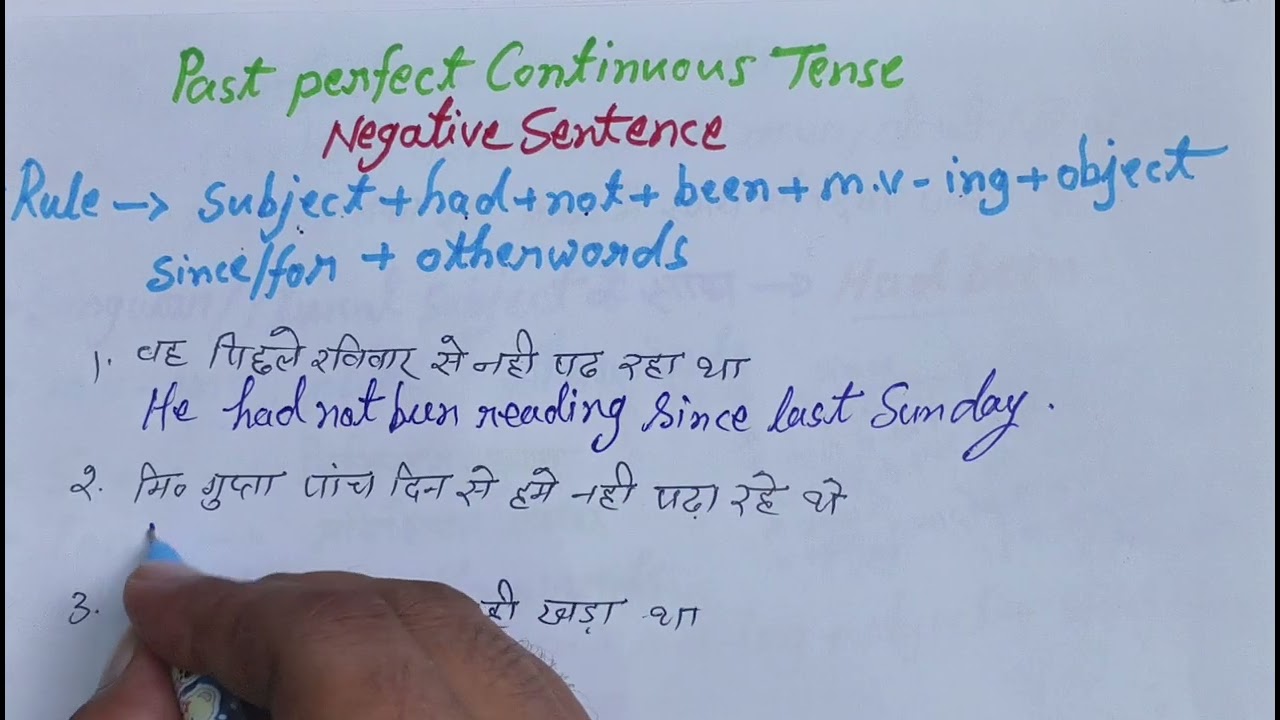 Past perfect Continuous Tense
Negative Sentence
Rule → subject + had + not + been + m.v - ing + object
since/for + otherwords
1. वह पिछले रविवार से नही पढ रहा था
He had not been reading since last Sunday.
२. मि० गुप्ता पांच दिन से हमे नही पढ़ा रहे थे
3. खड़ा था